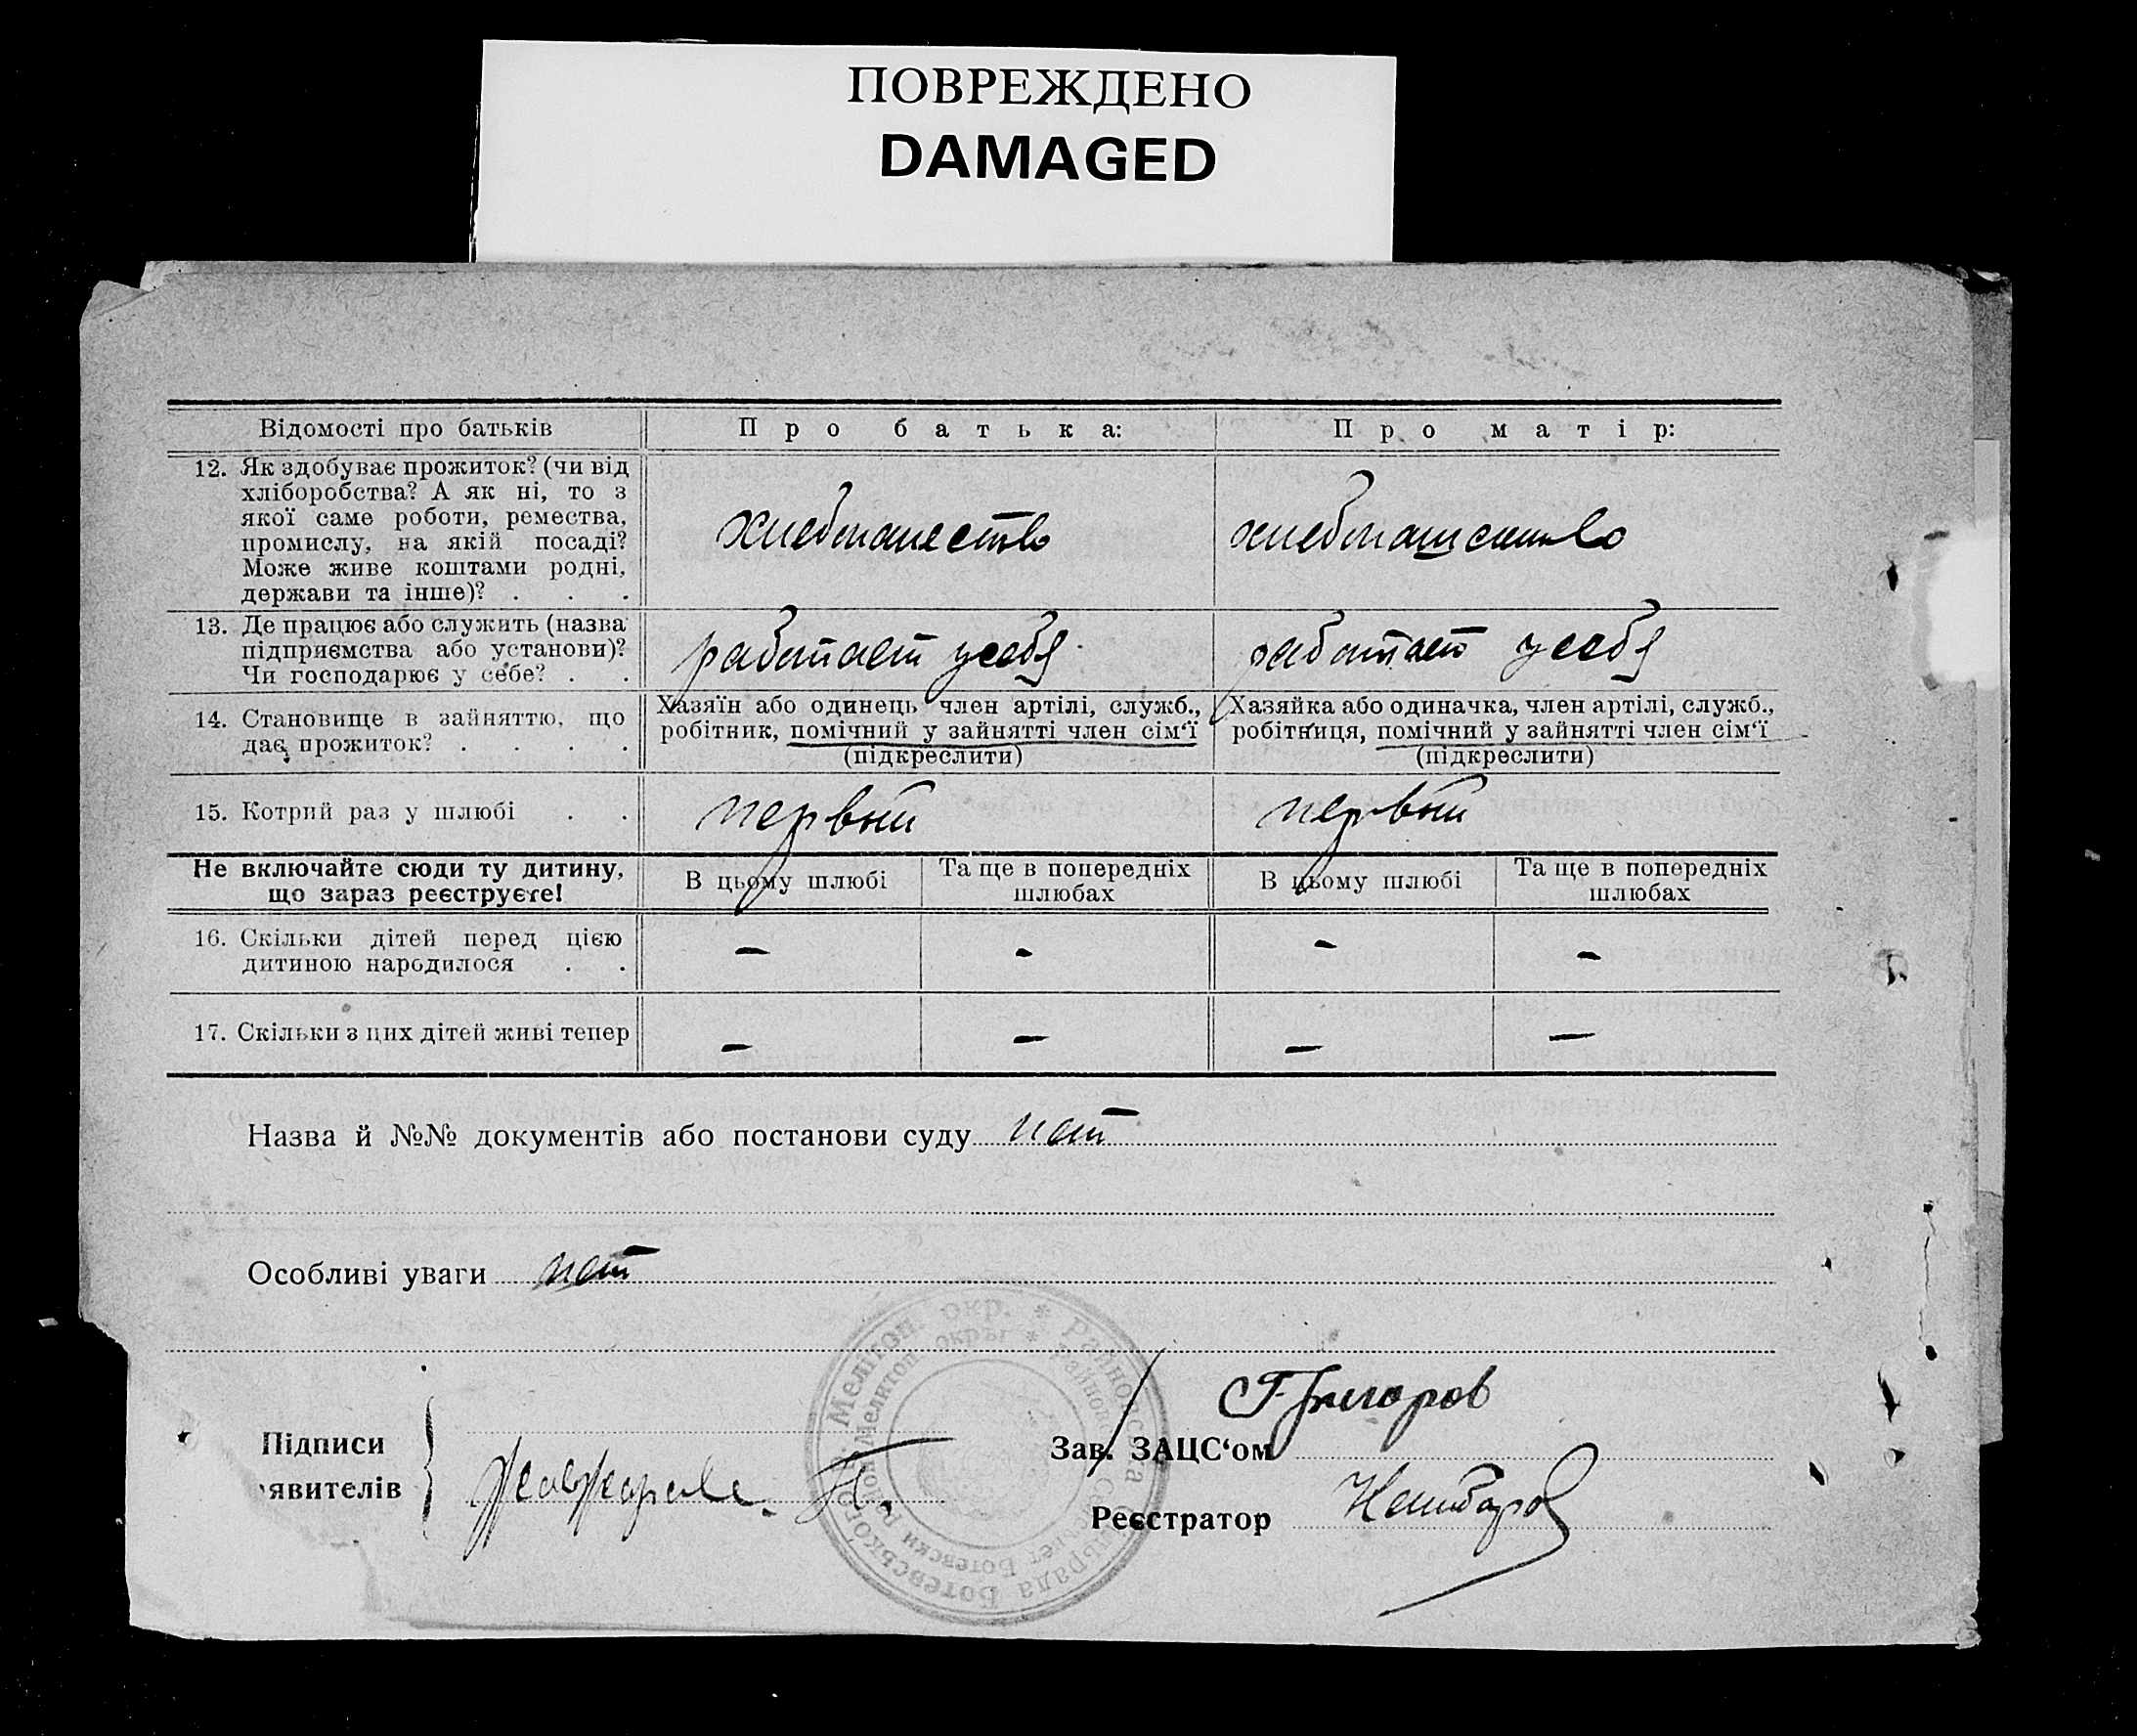 ПОВРЕЖДЕНО
DAMAGED
Відомості про батьків
Про батька:
Про матір:
12. Як здобуває прожиток? (чи від
хліборобства? А як ні, то з
якої саме роботи, ремества,
промислу, на якій посаді?
Може живе коштами родні,
держави та інше)? . . .
хлебопашество
хлебопашество
13. Де працює або служить (назва
підприємства або установи)?
Чи господарює у себе? . .
работает у себя
работает у себя
14. Становище в зайняттю, що
дає прожиток? . . . .
Хазяїн або одинець член артілі, служб.,
робітник, помічний у зайнятті член сім'ї
(підкреслити)
Хазяйка або одиначка, член артілі, служб.,
робітниця, помічний у зайнятті член сім'ї
(підкреслити)
15. Котрий раз у шлюбі . .
первый
первый
Не включайте сюди ту дитину,
що зараз реєструєте!
В цьому шлюбі
Та ще в попередніх
шлюбах
В цьому шлюбі
Та ще в попередніх
шлюбах
16. Скільки дітей перед цією
дитиною народилося . .
— — — —
17. Скільки з цих дітей живі тепер
— — — —
Назва й №№ документів або постанови суду нет
Особливі уваги нет
Мелітоп. окр. * Райновська Сільрада Ботевського
Мелитоп. окръг * Ботевски район
Підписи
явителів
Зав. ЗАЦС'ом
Григоров
Реєстратор